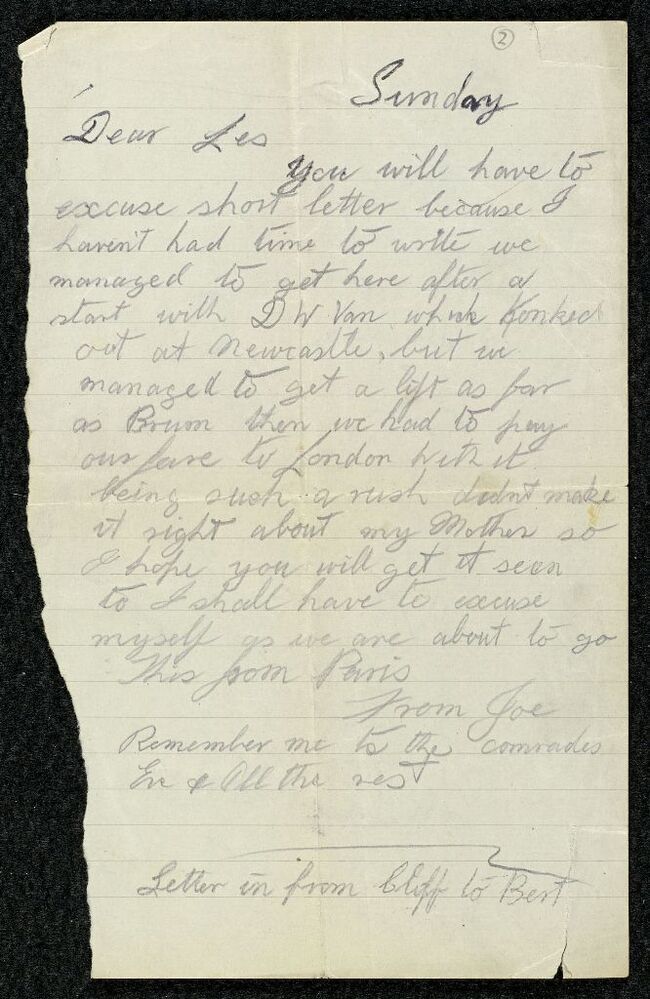 2
Sunday
Dear Les
You will have to
excuse short letter because I
haven't had time to write we
managed to get here after a
start with D W Van which Konked
out at Newcastle, but we
managed to get a lift as far
as Brum then we had to pay
our fare to London with it
being such a rush didn't make
it right about my Mother so
I hope you will get it seen
to I shall have to excuse
myself as we are about to go
This from Paris
From Joe
Remember me to the comrades
& All the rest
Letter in from Cliff to Bert